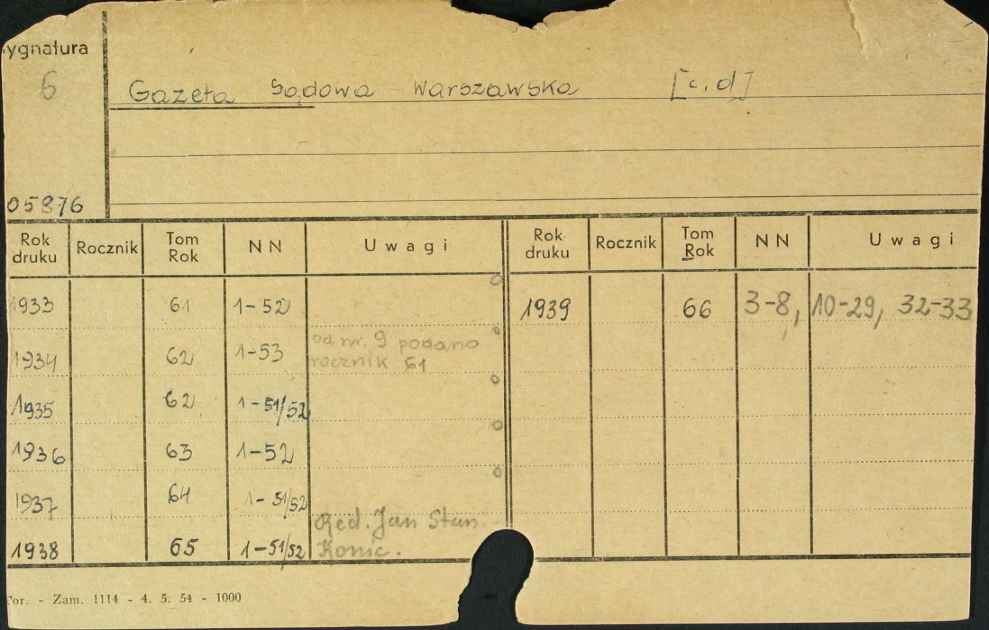 ygnatura
6
Gazeta Sądowa Warszawska [c.d]
05876
Rok druku Rocznik Tom Rok NN Uwagi Rok druku Rocznik Tom Rok NN Uwagi
1933 61 1-52 1939 66 3-8, 10-29, 32-33
1934 62 1-53 od nr. 9 podano
rocznik 61
1935 62 1-51/52
1936 63 1-52
1937 64 1-51/52
Red. Jan Stan.
1938 65 1-51/52 Konic.
or. - Zam. 1114 - 4. 5. 54 - 1000